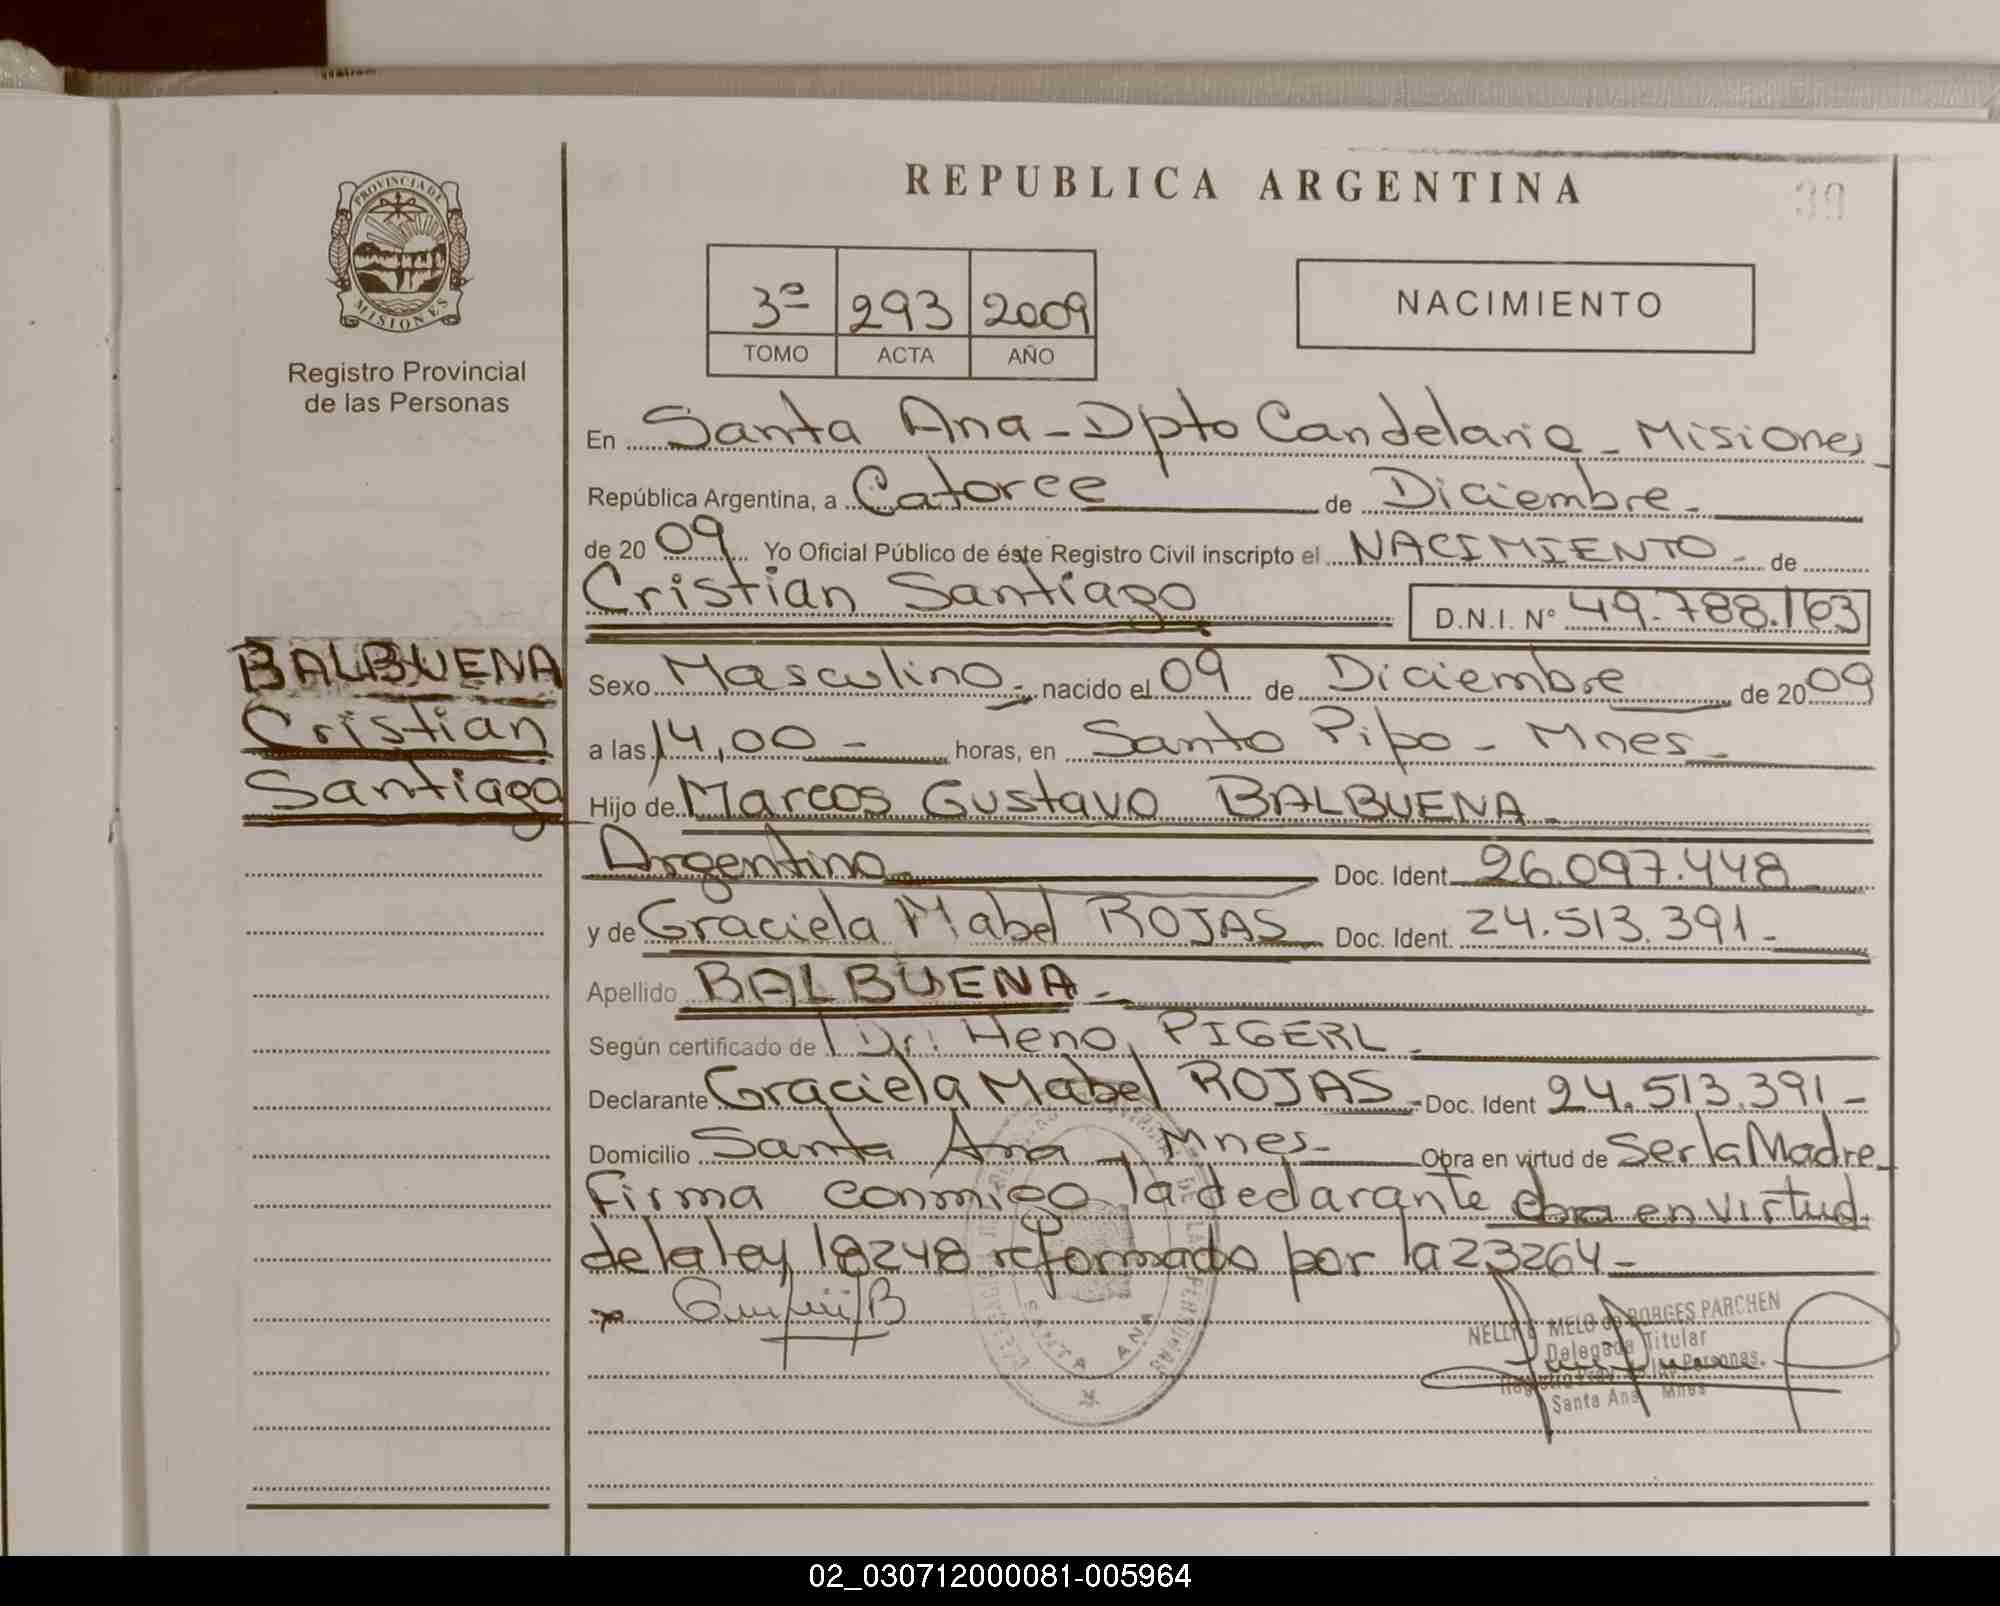 REPUBLICA ARGENTINA
39
PROVINCIA DE
MISIONES
Registro Provincial
de las Personas
3º 293 2009
TOMO ACTA AÑO
NACIMIENTO
En Santa Ana - Dpto Candelaria - Misiones
República Argentina, a Catorce de Diciembre -
de 2009 Yo Oficial Público de éste Registro Civil inscripto el NACIMIENTO - de
Cristian Santiago D.N.I. Nº 49.788.163
BALBUENA
Cristian
Santiago
Sexo Masculino - nacido el 09 de Diciembre de 2009
a las 14,00 - horas, en Santo Pipo - Mnes -
Hijo de Marcos Gustavo BALBUENA -
Argentino Doc. Ident. 26.097.448
y de Graciela Mabel ROJAS Doc. Ident. 24.513.391 -
Apellido BALBUENA -
Según certificado de Dr. Heno PIGERL -
Declarante Graciela Mabel ROJAS - Doc. Ident 24.513.391 -
Domicilio Santa Ana, Mnes - Obra en virtud de Ser la Madre -
Firma conmigo la declarante obra en virtud
de la ley 18248 reformado por la 23264 -
SANTA ANA
NELLY MELO de BORGES PARCHEN
Delegada Titular
Registro Prov. de las Personas
Santa Ana Mnes
02_030712000081-005964